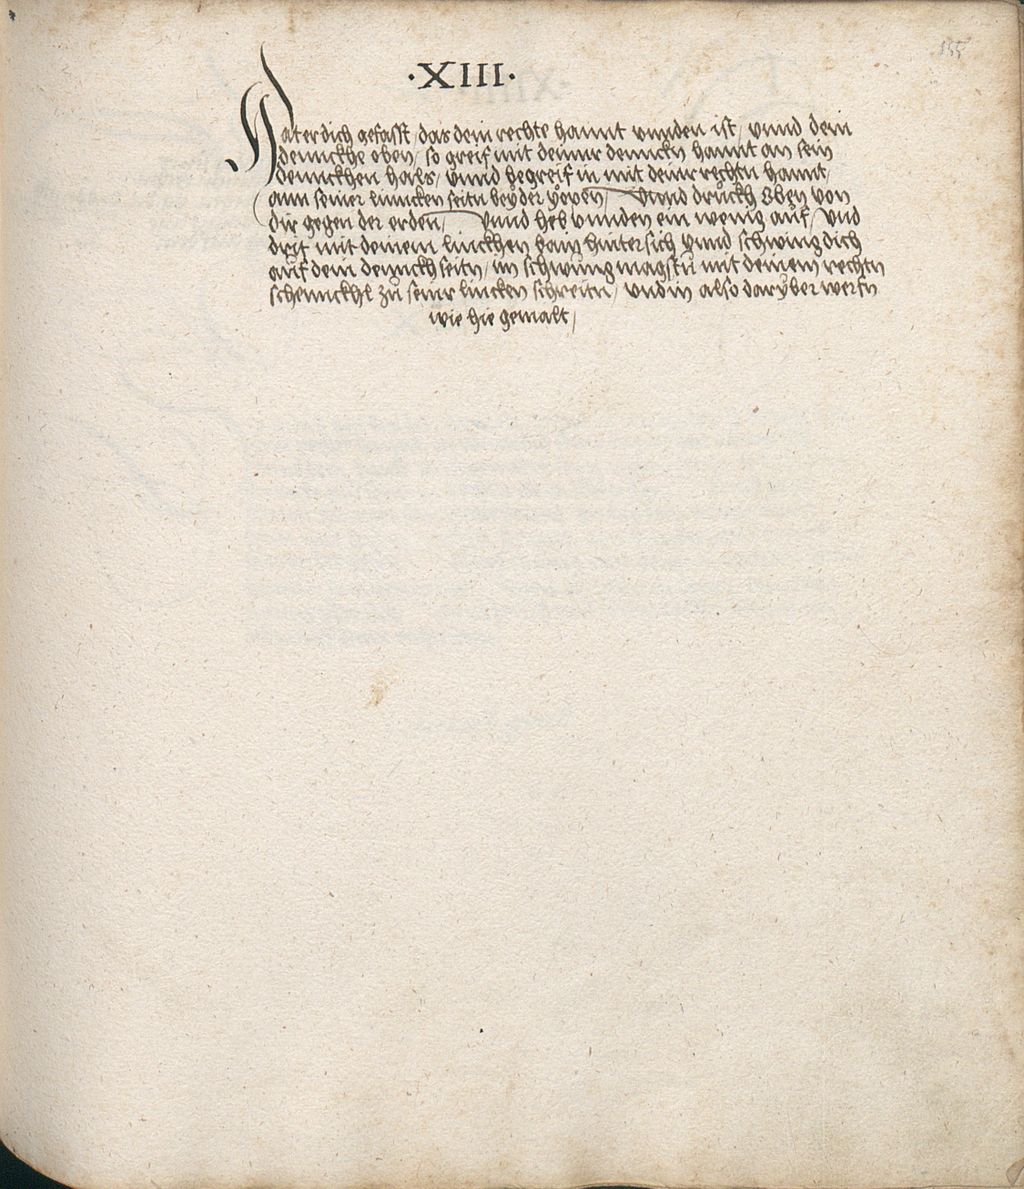 155
·XIII·
Hater dich gefasst / das dein rechte hannt vnnden ist / vnnd dein
dennckhe oben / so greif mit deinnr denncken hannt an sein
dennckhen hals / vnnd begreif in mit deinr rechtn hannt /
ann seiner lincken seitn bey der yopen / Vnnd druckh oben von
dir gegen der erden / Vnnd heb vnnden ein wenig auf / vnd
drit mit deinem linckhen bain hintersich vnnd schwing dich
auf dein dennckh seitn / im schwung magstu mit deinem rechtn
schennckhl zu seinr lincken schreitn / vnd in also daryber werfn
wie hie gemalt /